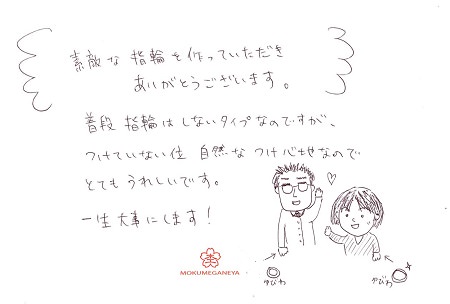 素敵な指輪を作っていただき
ありがとうございます。
普段指輪はしないタイプなのですが、
つけていない位自然なつけ心地なので
とてもうれしいです。
一生大事にします！
ゆびわ
ゆびわ
MOKUMEGANEYA